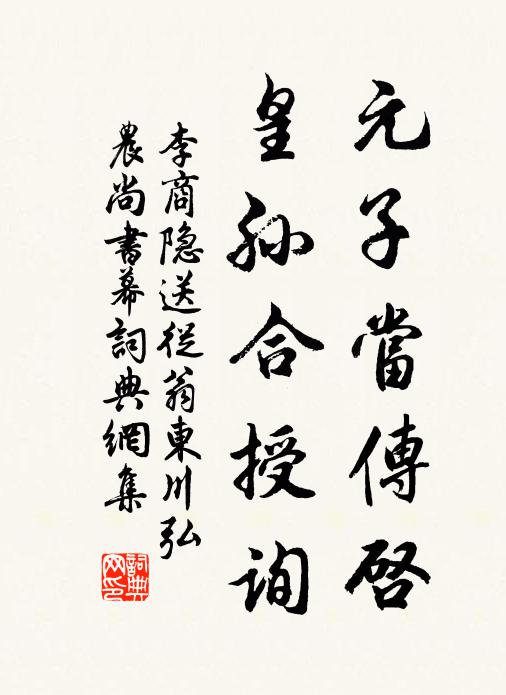 元子當傳啓
皇孫合授詢
李商隐送從翁東川弘
農尚書幕詞典網集
詞典
网印